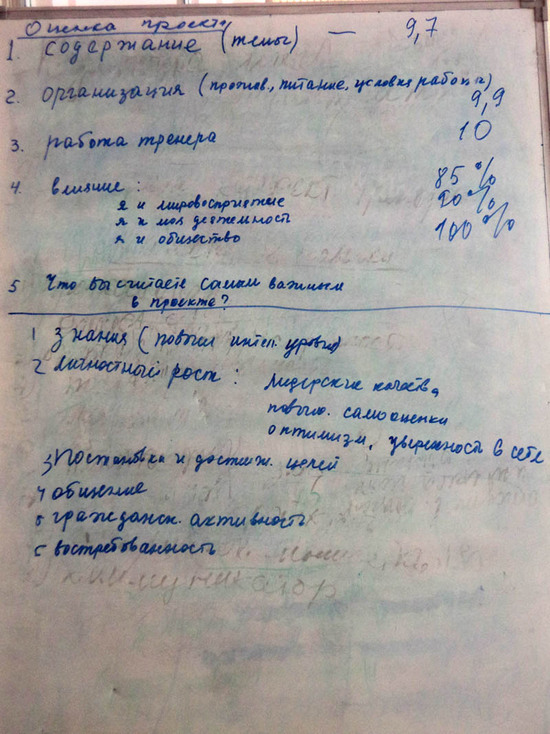 Оценка проекту
1. Содержание (темы) — 9,7
2. Организация (прожив., питание, условия работы)
9,9
3. работа тренера 10
4. влияние :
я и мировосприятие 85 %
я и моя деятельность 90 %
я и общество 100 %
5 Что вы считаете самым важным
в проекте?
1 Знания (повысил интел. уровень)
2 Личностный рост : лидерские качества,
повыш. самооценки
оптимизм, уверенность в себе
3 Постановка и достиж. целей
4 общение
5 гражданск. активность
6 востребованность
коммуникатор